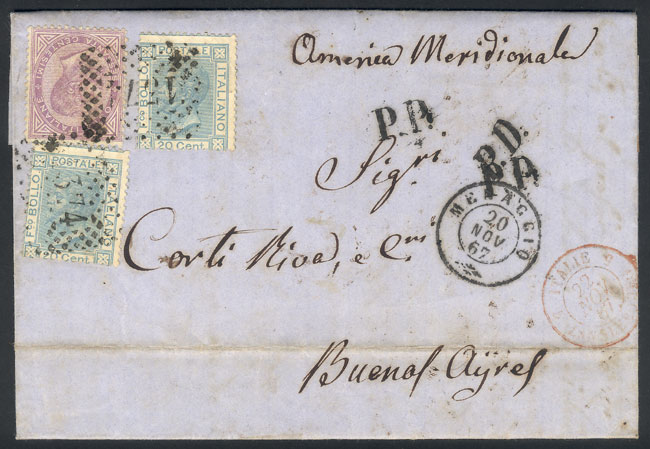 America Meridionale
F.co BOLLO
POSTALE
ITALIANO
20 Cent.
P.D.
P.D.
P.D.
Sig.ri
F.co BOLLO
POSTALE
ITALIANO
20 Cent.
MENAGGIO
20
NOV
67
Corti Riva, e C.mi
ITALIE
Buenos-Ayres